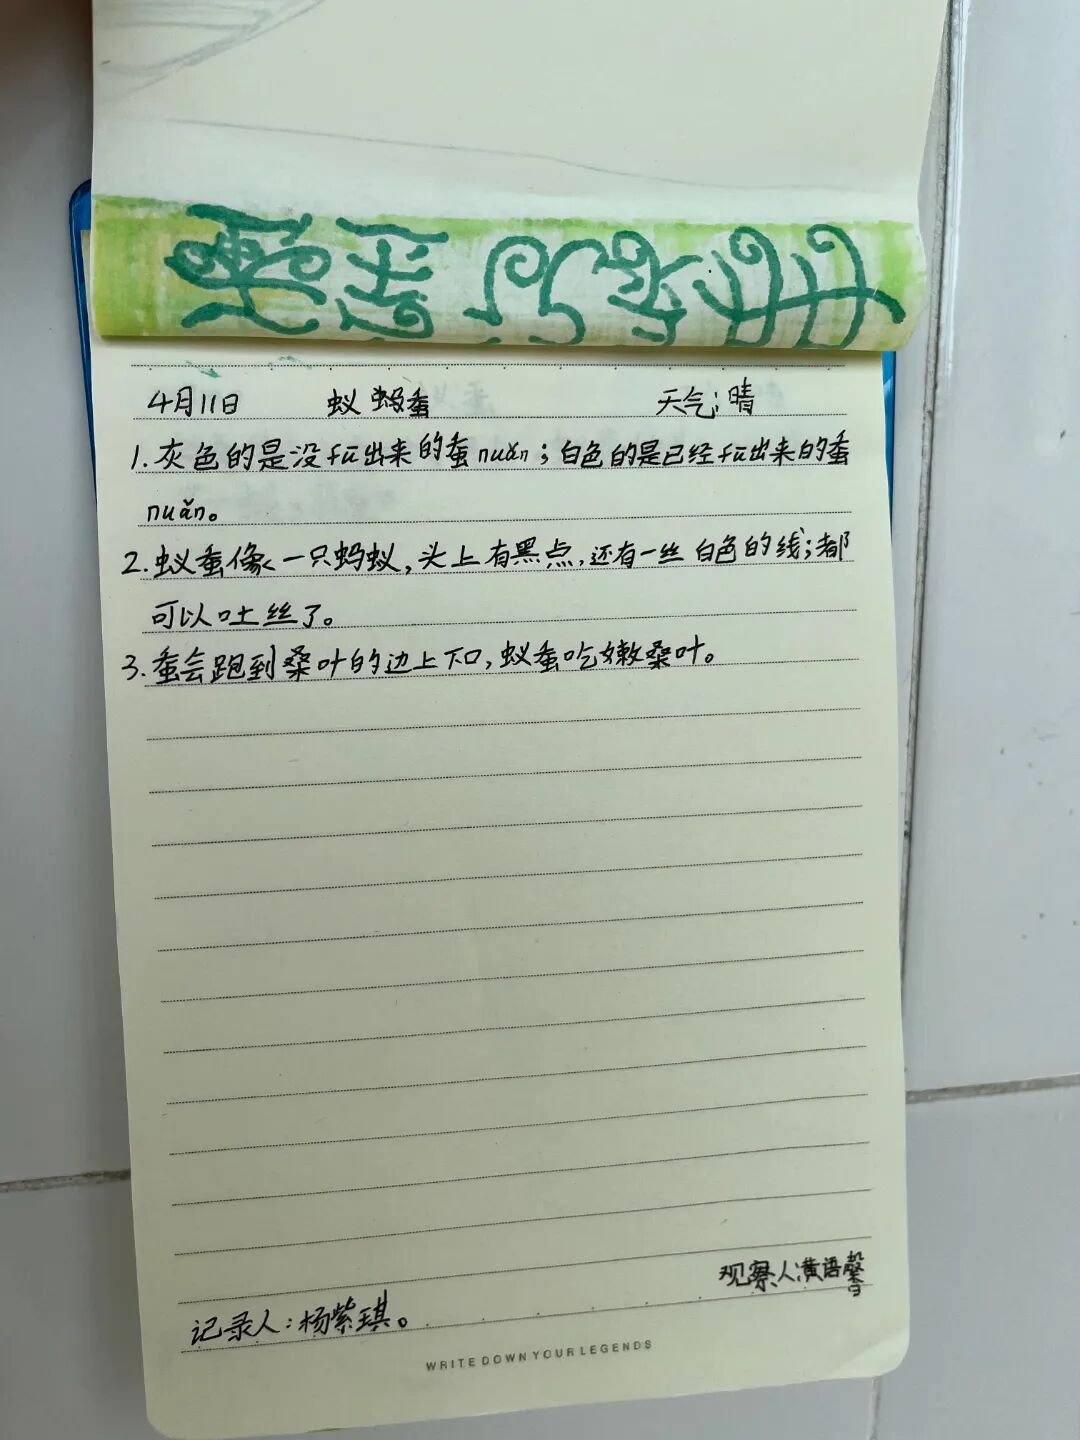 4月11日 蚁蚂蚕 天气:晴
1.灰色的是没fū出来的蚕nuǎn;白色的是已经fū出来的蚕
nuǎn。
2.蚁蚕像一只蚂蚁,头上有黑点,还有一丝白色的线;都
可以吐丝了。
3.蚕会跑到桑叶的边上下口,蚁蚕吃嫩桑叶。
观察人:黄语馨
记录人:杨紫琪。
WRITE DOWN YOUR LEGENDS